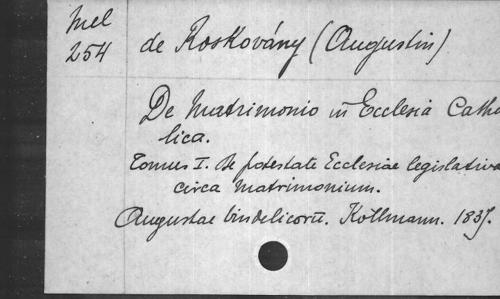 Mel
254
de Roskovány (Augustin)
De Matrimonio in Ecclesia Catho
lica.
Tomus I. De potestate Ecclesiae legislativa
circa Matrimonium.
Augustae Vindelicorū. Kollmann. 1837.